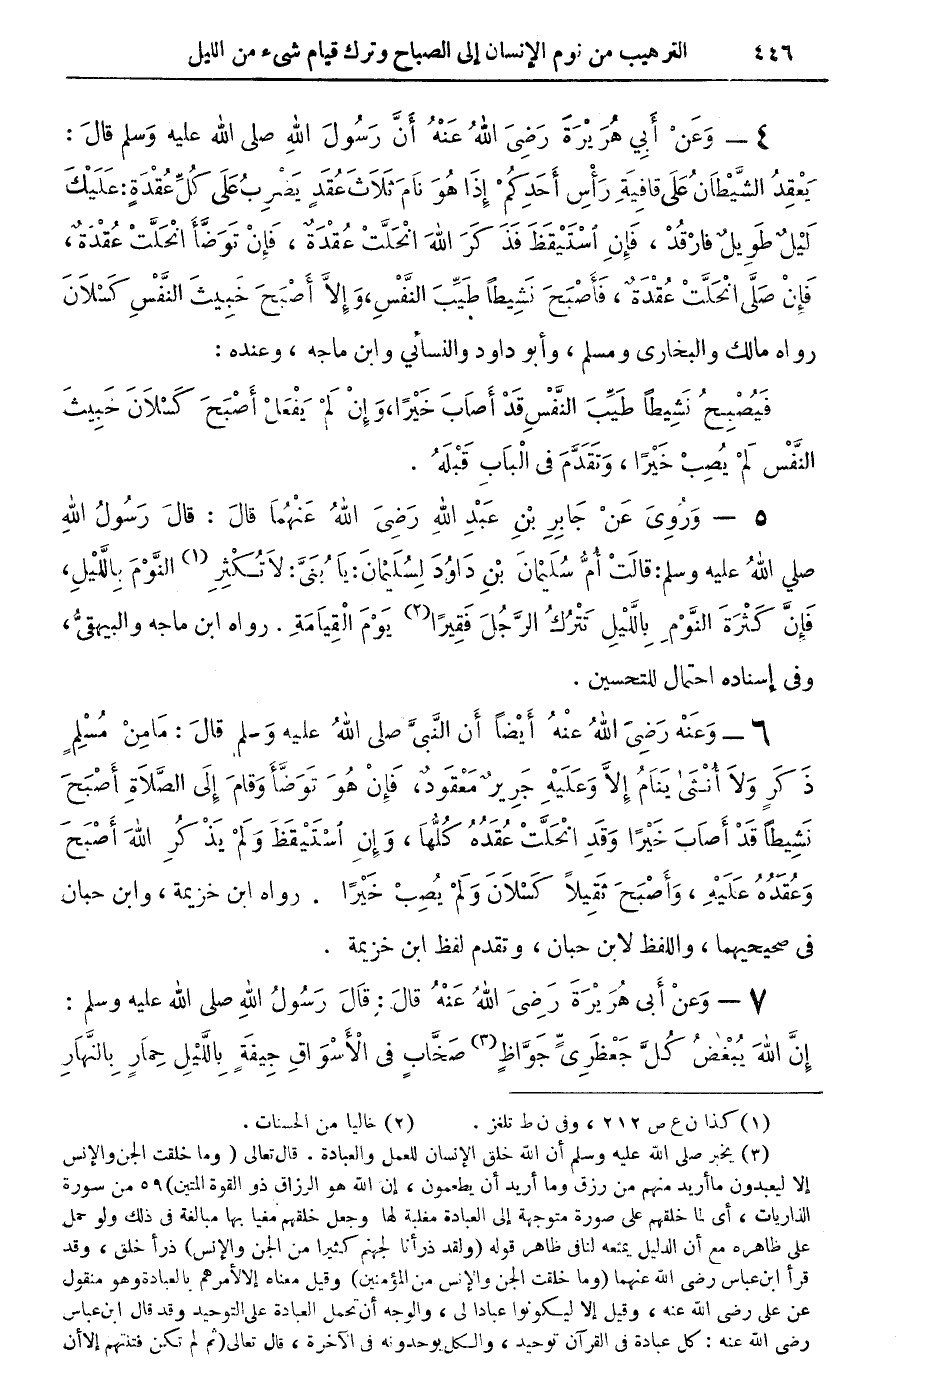 ٤٤٦ الترهيب من نوم الإنسان إلى الصباح وترك قيام شىء من الليل
٤ — وَعَنْ أَبِي هُرَيْرَةَ رَضِىَ اللهُ عَنْهُ أَنَّ رَسُولَ اللهِ صلى الله عليه وَسلم قالَ :
يَعْقِدُ الشَّيْطَانُ عَلَى قافِيَةِ رَأْسِ أَحَدِكُمْ إِذَا هُوَ نَامَ ثَلَاثَ عُقَدٍ يَضْرِبُ عَلَى كُلِّ عُقْدَةٍ : عَلَيْكَ
لَيْلٌ طَوِيلٌ فارْقُدْ ، فَإِنِ اسْتَيْقَظَ فَذَ كَرَ اللهَ انْحَلَّتْ عُقْدَةٌ ، فَإِنْ تَوَضَّأَ انْحَلَّتْ عُقْدَةٌ ،
فَإِنْ صَلَّى انْحَلَّتْ عُقْدَةٌ ، فَأَصْبَحَ نَشِيطاً طَيِّبَ النَّفْسِ ، وَإِلاَّ أَصْبَحَ خَبِيثَ النَّفْسِ كَسْلَانَ
رواه مالك والبخارى ومسلم ، وأبو داود والنسائي وابن ماجه ، وعنده :
فَيُصْبِحُ نَشِيطاً طَيِّبَ النَّفْسِ قَدْ أَصَابَ خَيْرًا ، وَإِنْ لَمْ يَفْعَلْ أَصْبَحَ كَسْلَانَ خَبِيثَ
النَّفْسِ لَمْ يُصِبْ خَيْرًا ، وَتَقَدَّمَ فى الْبَابِ قَبْلَهُ .
٥ — وَرُوِىَ عَنْ جَابِرِ بْنِ عَبْدِ اللهِ رَضِىَ اللهُ عَنْهُمَا قالَ : قالَ رَسُولُ اللهِ
صلي اللهُ عليه وسلم : قالَتْ أُمُّ سُلَيْمَانَ بْنِ دَاوُدَ لِسُلَيْمَانَ : يا بُنَىَّ : لاَ تُكْثِرِ (١) النَّوْمَ بِاللَّيْلِ ،
فَإِنَّ كَثْرَةَ النَّوْمِ بِاللَّيْلِ تَتْرُكُ الرَّجُلَ فَقِيرًا (٢) يَوْمَ الْقِيَامَةِ . رواه ابن ماجه والبيهقىُّ ،
وفى إسناده احتمال للتحسين .
٦ — وَعَنْه رَضِىَ اللهُ عنْهُ أَيْضاً أن النَّبىَّ صلى اللهُ عليه وَسلم قالَ : مَامِنْ مُسْلِمٍ
ذَكَرٍ وَلاَ أُنْثَىٰ يَنَامُ إِلاَّ وَعَلَيْهِ جَرِيرٌ مَعْقُودٌ ، فَإِنْ هُوَ تَوَضَّأَ وَقامَ إِلَى الصَّلاَةِ أَصْبَحَ
نَشِيطاً قَدْ أَصابَ خَيْرًا وَقَدِ انْحَلَّتْ عُقَدُهُ كُلُّهَا ، وَإِنِ اسْتَيْقَظَ وَلَمْ يَذْكُرِ اللهَ أَصْبَحَ
وَعُقَدُهُ عَلَيْهِ ، وَأَصْبَحَ ثَقِيلاً كَسْلَانَ وَلَمْ يُصِبْ خَيْرًا . رواه ابن خزيمة ، وابن حبان
فى صحيحيهما ، واللفظ لابن حبان ، وتقدم لفظ ابن خزيمة .
٧ — وَعَنْ أبى هُرَيْرَةَ رَضِىَ اللهُ عَنْهُ قالَ : قَالَ رَسُولُ اللهِ صلى الله عليه وسلم :
إِنَّ اللهَ يُبْغِضُ كُلَّ جَعْظَرِىٍّ جَوَّاظٍ (٣) صَخَّابٍ فى الْأَسْوَاقِ جِيفَةٍ بِاللَّيْلِ حِمَارٍ بِالنَّهَارِ
(١) كذا ن ع ص ٢١٢ ، وفى ن ط تلغز . (٢) خاليا من الحسنات .
(٣) يخبر صلى الله عليه وسلم أن الله خلق الإنسان للعمل والعبادة . قال تعالى ( وما خلقت الجن والإنس
إلا ليعبدون ماأريد منهم من رزق وما أريد أن يطعمون ، إن الله هو الرزاق ذو القوة المتين) ٥٩ من سورة
الذاريات ، أى لما خلقهم على صورة متوجهة إلى العبادة مغلبة لها وجعل خلقهم مغيا بها مبالغة فى ذلك ولو حمل
على ظاهره مع أن الدليل يمنعه لنافى ظاهر قوله (ولقد ذرأنا لجهنم كثيرا من الجن والإنس) ذرأ خلق ، وقد
قرأ ابن عباس رضى الله عنهما (وما خلقت الجن والإنس من المؤمنين) وقيل معناه إلا لأمرهم بالعبادة وهو منقول
عن على رضى الله عنه ، وقيل إلا ليكونوا عبادا لى ، والوجه أن تحمل العبادة على التوحيد وقد قال ابن عباس
رضى الله عنه : كل عبادة فى القرآن توحيد ، والكل يوحدونه فى الآخرة ، قال تعالى (ثم لم تكن فتنتهم إلا أن